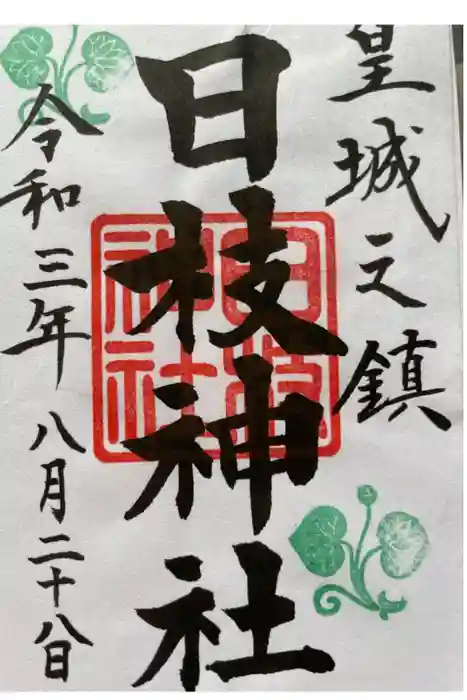 皇城之鎮
日枝神社
日枝神社
令和三年八月二十八日